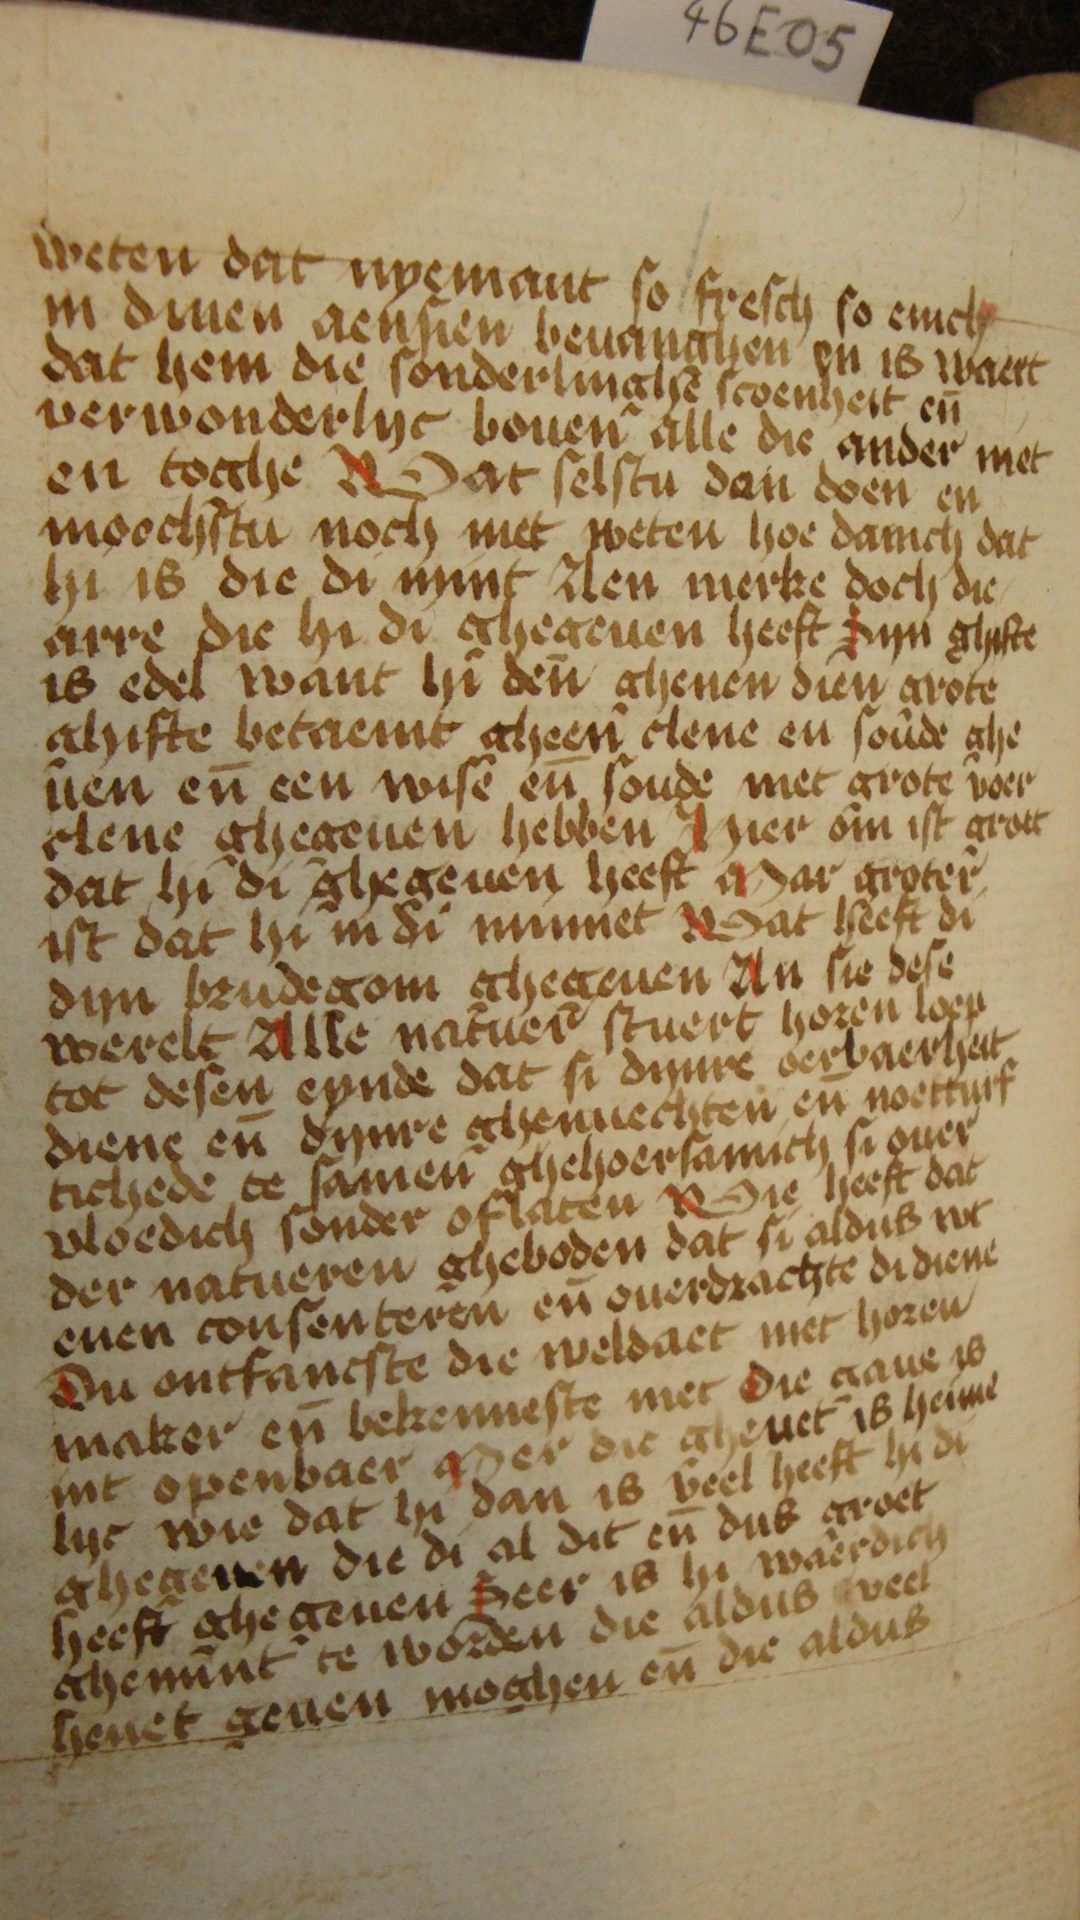 46E05
weten dat nyemant so fresch so enich
in dinen aensien beuanghen en is waert
dat hem die sonderlinghe scoenheit en̄
verwonderlyc bouen alle die ander niet
en toghe Wat selstu dan doen en
moechstu noch niet weten hoe danich dat
hi is die di mynt Nen merke doch die
arre die hi di ghegeuen heeft Sijn ghifte
is edel want hi den ghenen dien grote
ghifte betaemt gheen clene en soude ghe
uen en̄ een wise en̄ soude niet grote voer
clene ghegeuen hebben Hier om ist groet
dat hi di ghegeuen heeft Mar groter
ist dat hi in di minnet Wat heeft di
dijn brudegom ghegeuen An sie dese
werelt Alle natuer stuert horen loep
tot desen eynde dat si dijnre oerbaerheit
diene en̄ dijnre ghenuechten en̄ noetturf
tichede te samen ghehoersamich si ouer
vloedich sonder oflaten Wie heeft dat
der natueren gheboden dat si aldus wt
euen consenteren en̄ ouerdrachte di diene
Du ontfancste die weldaet niet horen
maker en̄ bekenneste niet Die gaue is
int openbaer Mer die gheuet is heime
lyc wie dat hi dan is veel heeft hi di
ghegeuen die di al dit en̄ dus groet
heeft ghegeuen Seer is hi waerdich
ghemint te worden die aldus veel
heuet geuen moghen en̄ die aldus